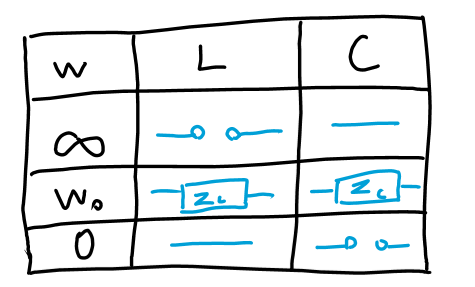 w L C
∞
w₀ Z_L Z_C
0